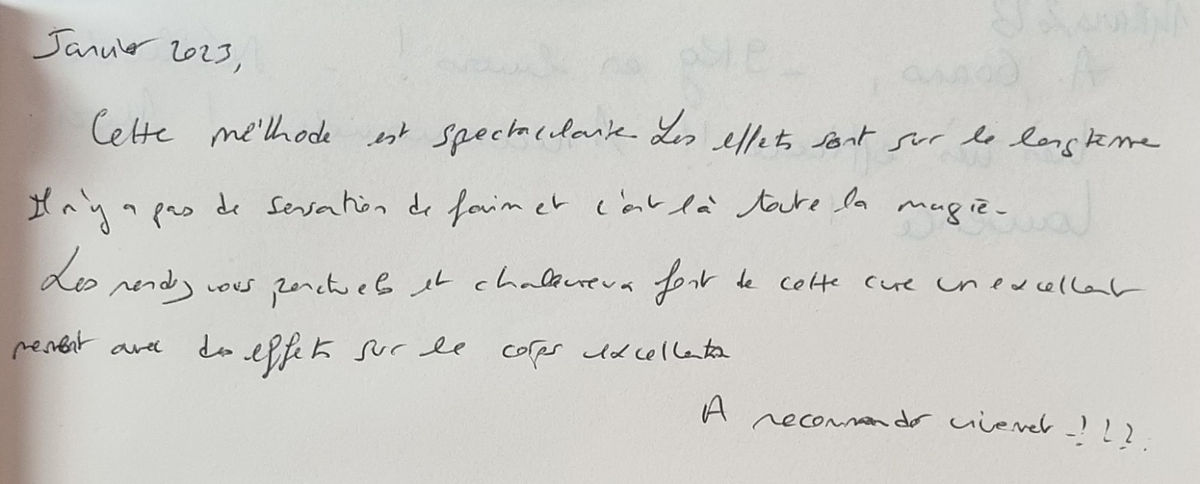 Janvier 2023,
Cette méthode est spectaculaire Les effets sont sur le long terme
Il n'y a pas de sensation de faim et c'est là toute la magie.
Les rendez vous ponctuels et chaleureux font de cette cure un excellent
moment avec des effets sur le corps excellents
A recommander vivement !!!